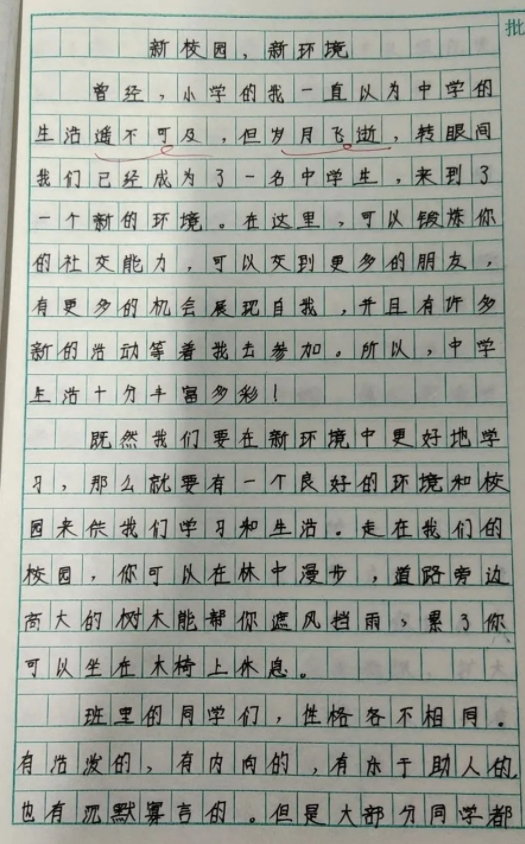 批
新校园，新环境
曾经，小学的我一直以为中学的
生活遥不可及，但岁月飞逝，转眼间
我们已经成为了一名中学生，来到了
一个新的环境。在这里，可以锻炼你
的社交能力，可以交到更多的朋友，
有更多的机会展现自我，并且有许多
新的活动等着我去参加。所以，中学
生活十分丰富多彩！
既然我们要在新环境中更好地学
习，那么就要有一个良好的环境和校
园来供我们学习和生活。走在我们的
校园，你可以在林中漫步，道路旁边
高大的树木能帮你遮风挡雨，累了你
可以坐在木椅上休息。
班里的同学们，性格各不相同。
有活泼的，有内向的，有乐于助人的
也有沉默寡言的。但是大部分同学都